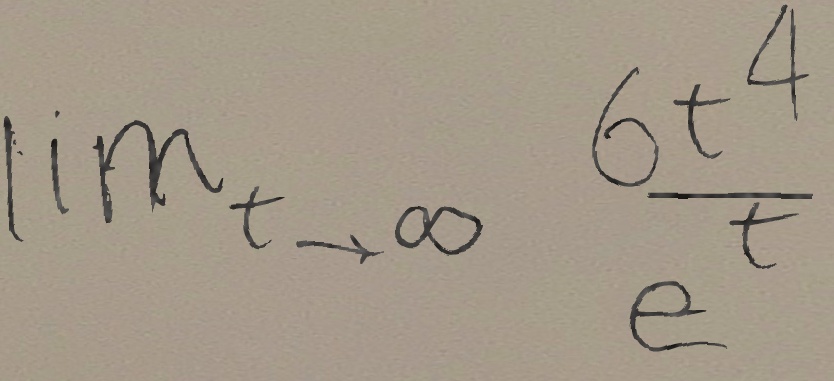 lim_{t \to \infty} \frac{6t^4}{e^t}